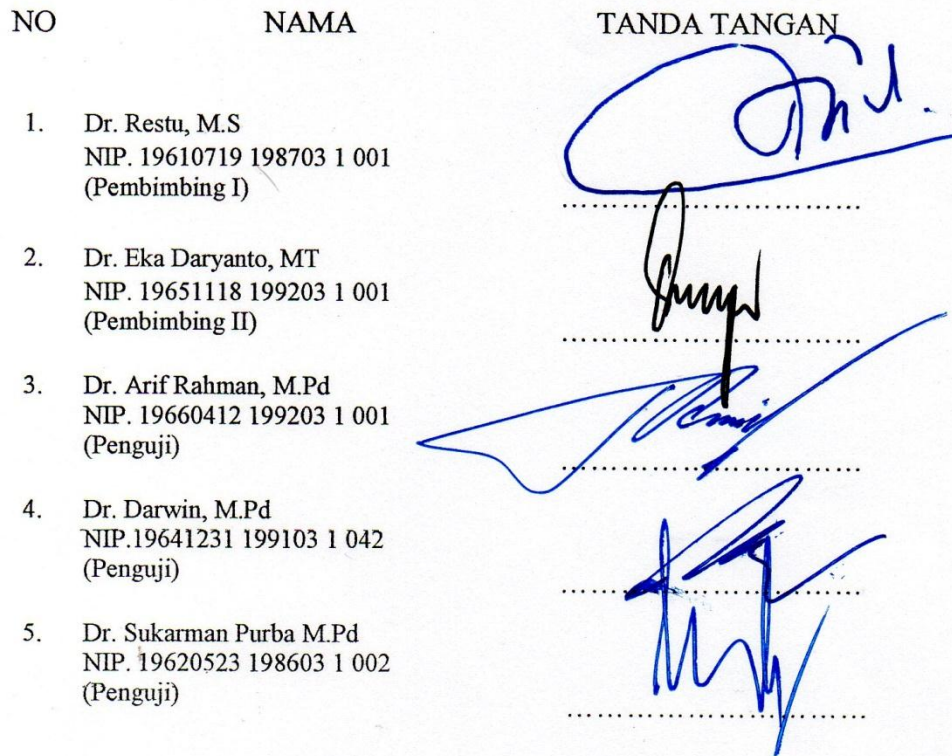 NO NAMA TANDA TANGAN
1. Dr. Restu, M.S
NIP. 19610719 198703 1 001
(Pembimbing I)
2. Dr. Eka Daryanto, MT
NIP. 19651118 199203 1 001
(Pembimbing II)
3. Dr. Arif Rahman, M.Pd
NIP. 19660412 199203 1 001
(Penguji)
4. Dr. Darwin, M.Pd
NIP.19641231 199103 1 042
(Penguji)
5. Dr. Sukarman Purba M.Pd
NIP. 19620523 198603 1 002
(Penguji)